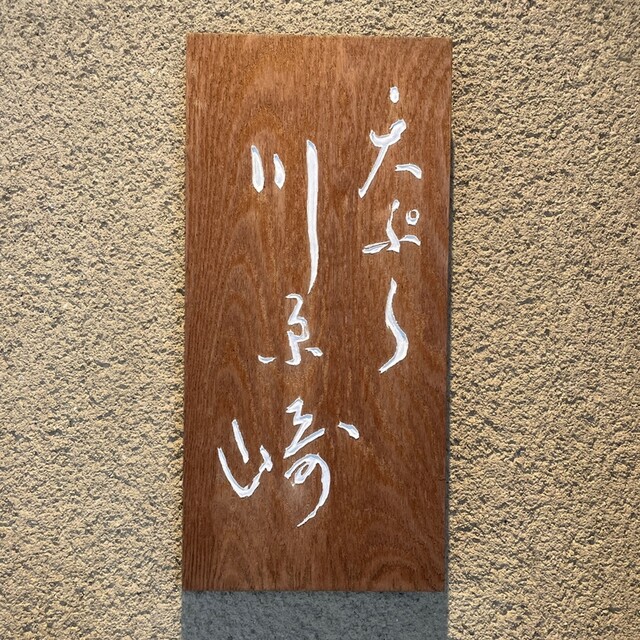 天ぷら
川京崎